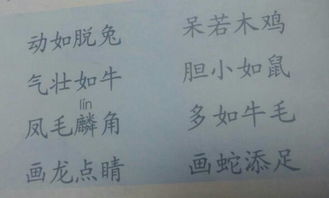 动如脱兔 呆若木鸡
气壮如牛 胆小如鼠
lín
凤毛麟角 多如牛毛
画龙点睛 画蛇添足